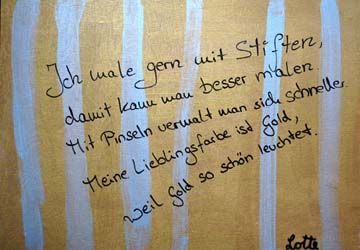 Ich male gern mit Stiften,
damit kann man besser malen.
Mit Pinseln vermalt man sich schneller.
Meine Lieblingsfarbe ist Gold,
weil Gold so schön leuchtet.
Lotte